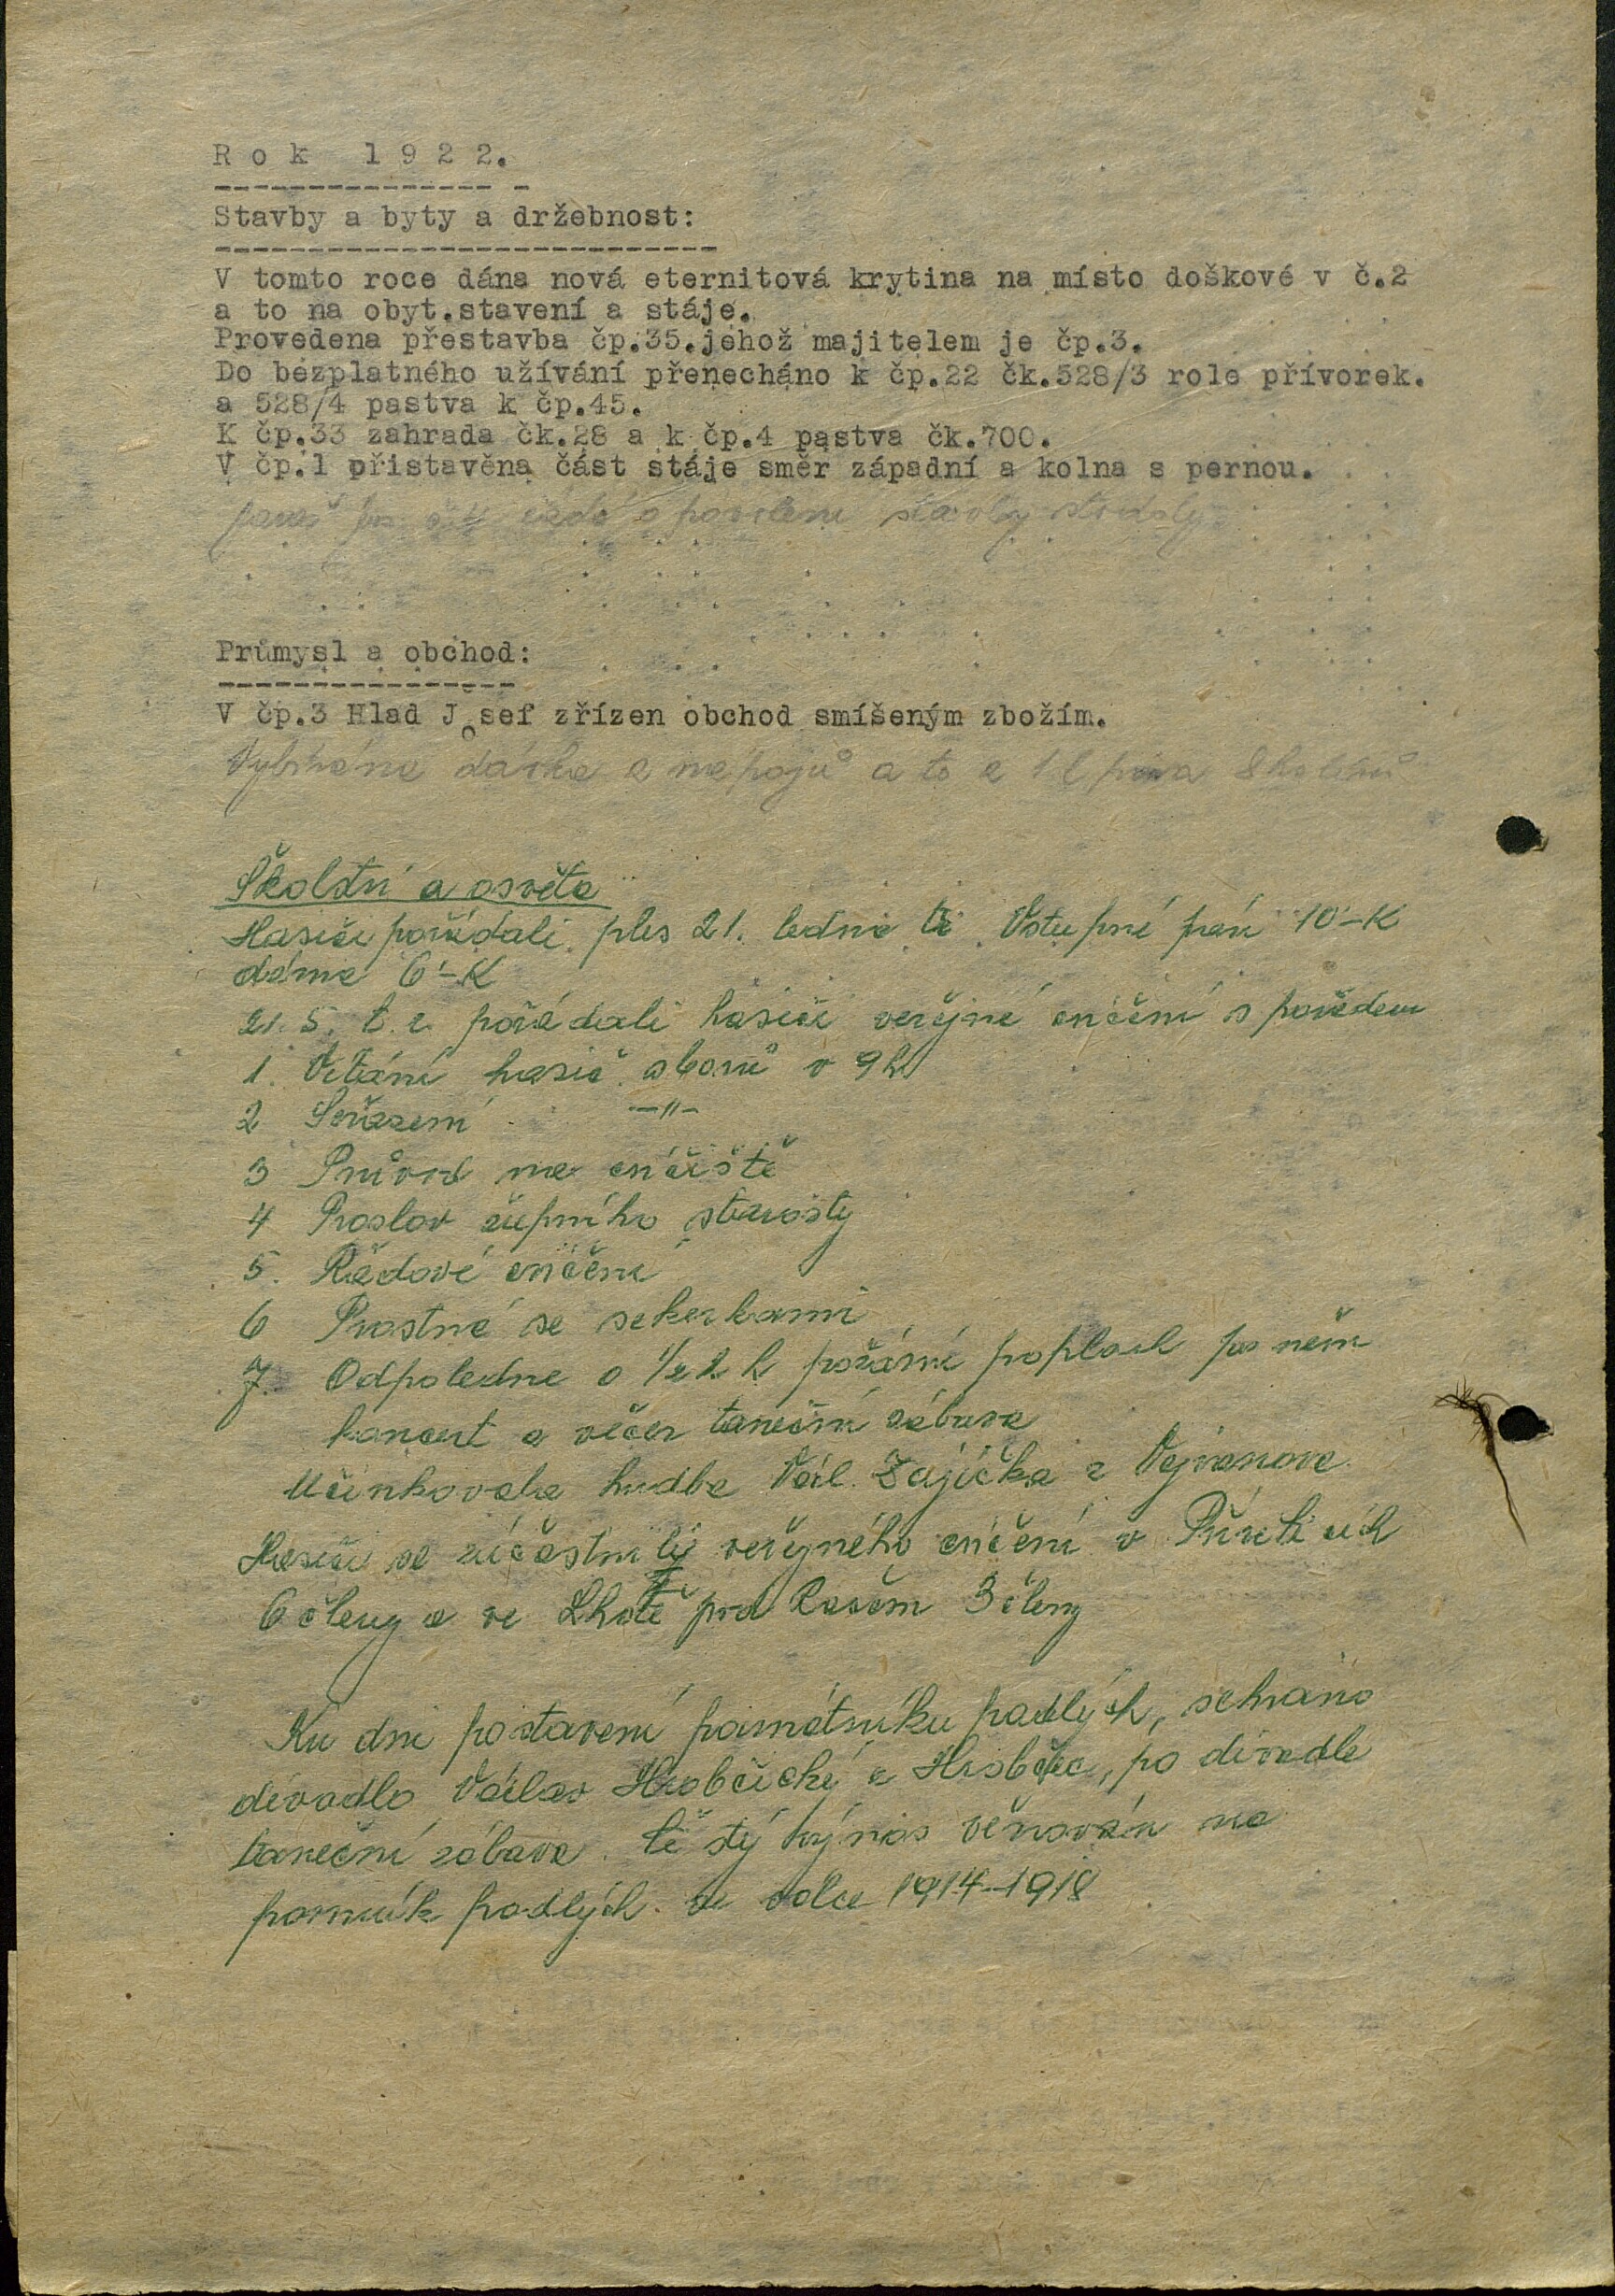 Rok 1922.
Stavby a byty a držebnost:
V tomto roce dána nová eternitová krytina na místo doškové v č.2
a to na obyt.stavení a stáje.
Provedena přestavba čp.35.jehož majitelem je čp.3.
Do bezplatného užívání přenecháno k čp.22 čk.528/3 role přívorek.
a 528/4 pastva k čp.45.
K čp.33 zahrada čk.28 a k čp.4 pastva čk.700.
V čp.1 přistavěna část stáje směr západní a kolna s pernou.
žádá o povolení stavby stodoly
Průmysl a obchod:
V čp.3 Hlad Josef zřízen obchod smíšeným zbožím.
Vybírána dávka z nápojů a to z 1 l piva 8 haléřů
Školství a osvěta
Hasiči pořádali ples 21. ledna Vstupné páni 10'-K
dáma 6'-K
21. 5. t. r. pořádali hasiči veřejné cvičení s pořadem
1. Vítání hasič. sborů v 9h
2 Seřazení -"-
3 Průvod na cvičiště
4 Proslov župního starosty
5. Řadové cvičení
6 Prostná se sekerkami
7. Odpoledne o 1/2 2 h požární poplach po něm
koncert a večer taneční zábava
Učinkovala hudba Vác. Zajíčka z Vejvanova.
Hasiči se zúčastnily veřejného cvičení v
6 členy a ve Lhotě pod 3 členy
Ku dni postavení pamětníku padlých, sehráno
divadlo Václav Hrobčický z Hrobčic, po divadle
taneční zábava. Čistý výnos věnován na
pomník padlých ve válce 1914-1918